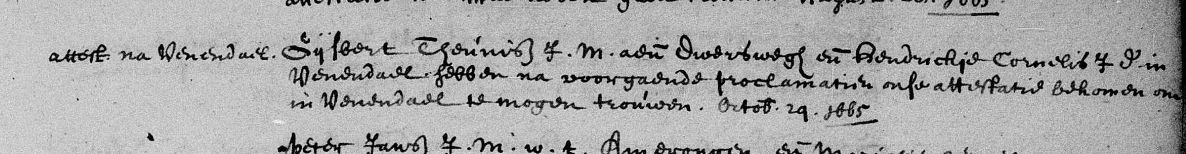 1665.
attest. na Venendael. Gijsbert Theunisz J. M. aen Dwerswegh en Hendrickje Cornelis J. D. in
Venendael hebben na voorgaende proclamatien onse attestatie bekomen om
in Venendael te mogen trouwen. Octob. 29. 1665
Peter Jansz J. M. w. t. Amerongen en